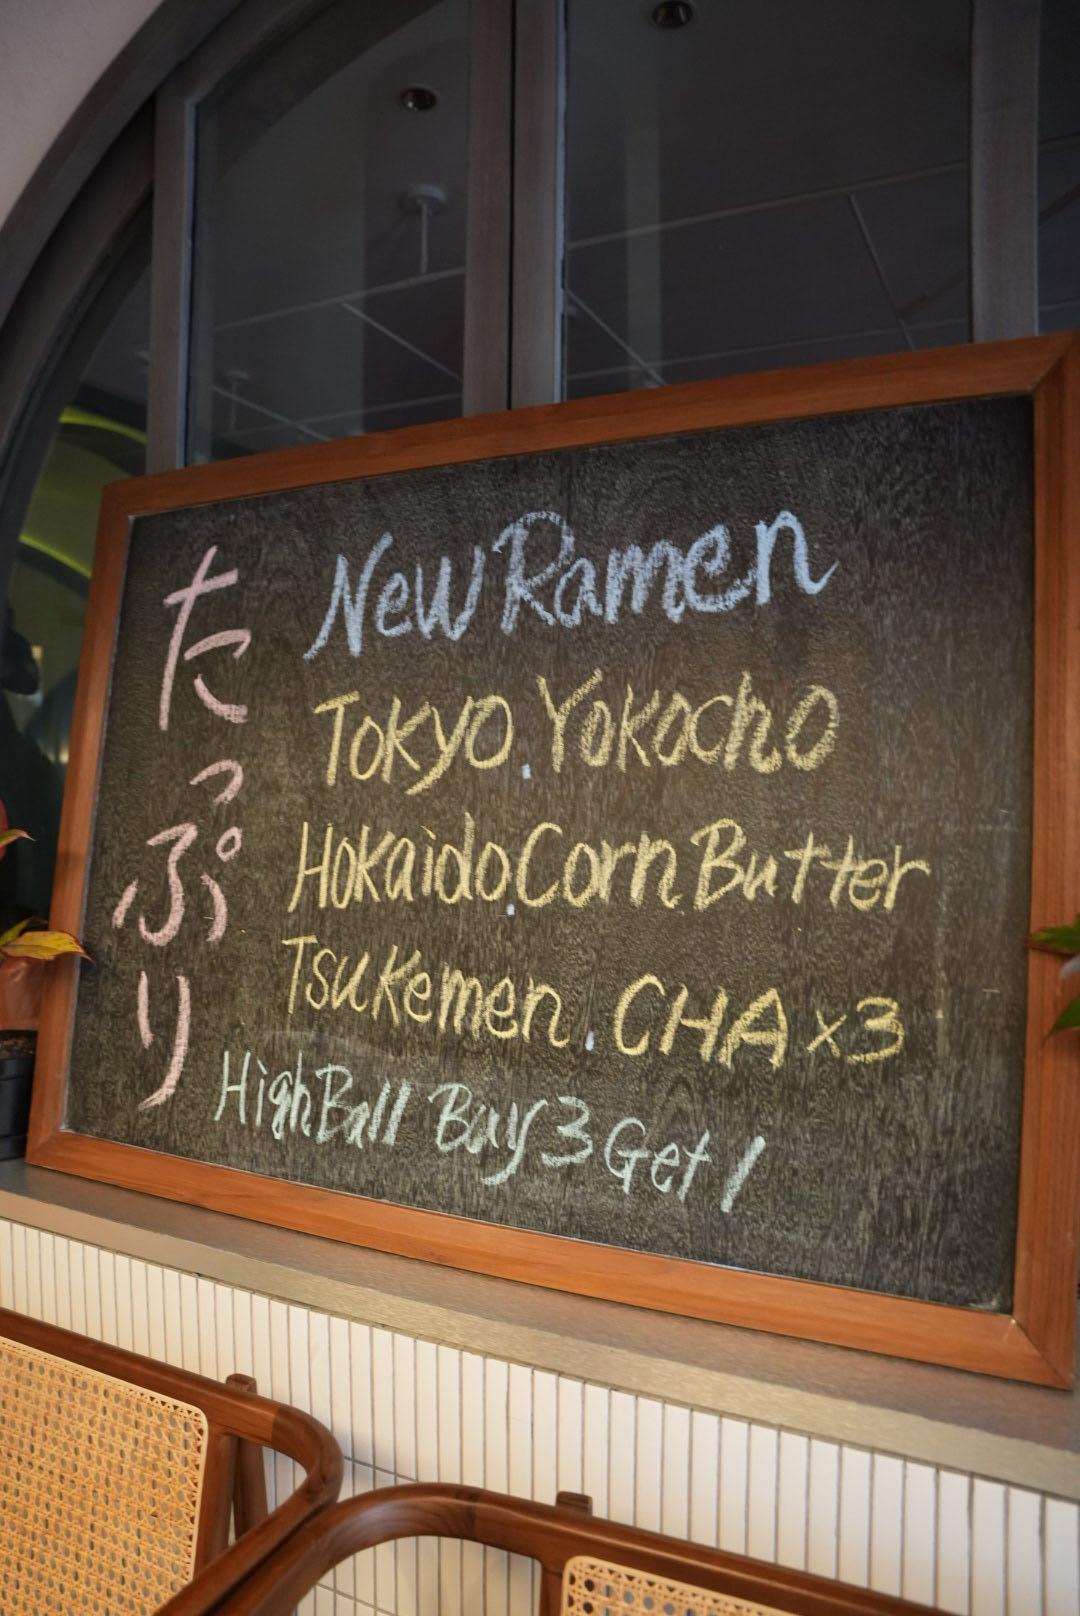 たっぷり
New Ramen
Tokyo.Yokocho
Hokaido.Corn Butter
Tsukemen.CHA x3
HighBall Buy 3 Get 1